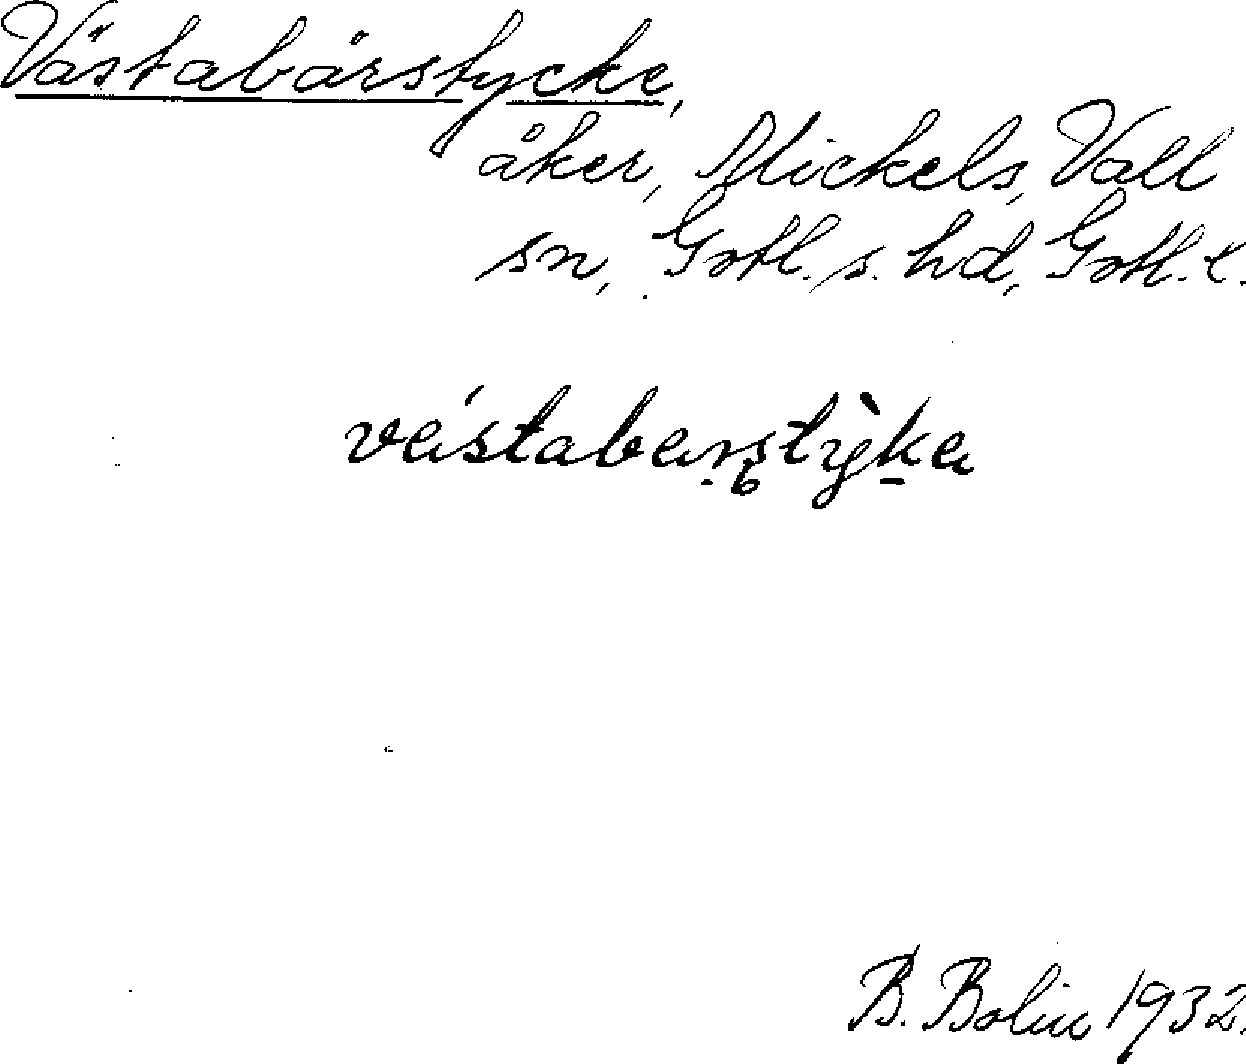 Västabårstycke,
åker, Mickels, Vall
sn, Gotl. s. hd, Gotl. l.
vástabarstỳka
B. Bolin 1932.